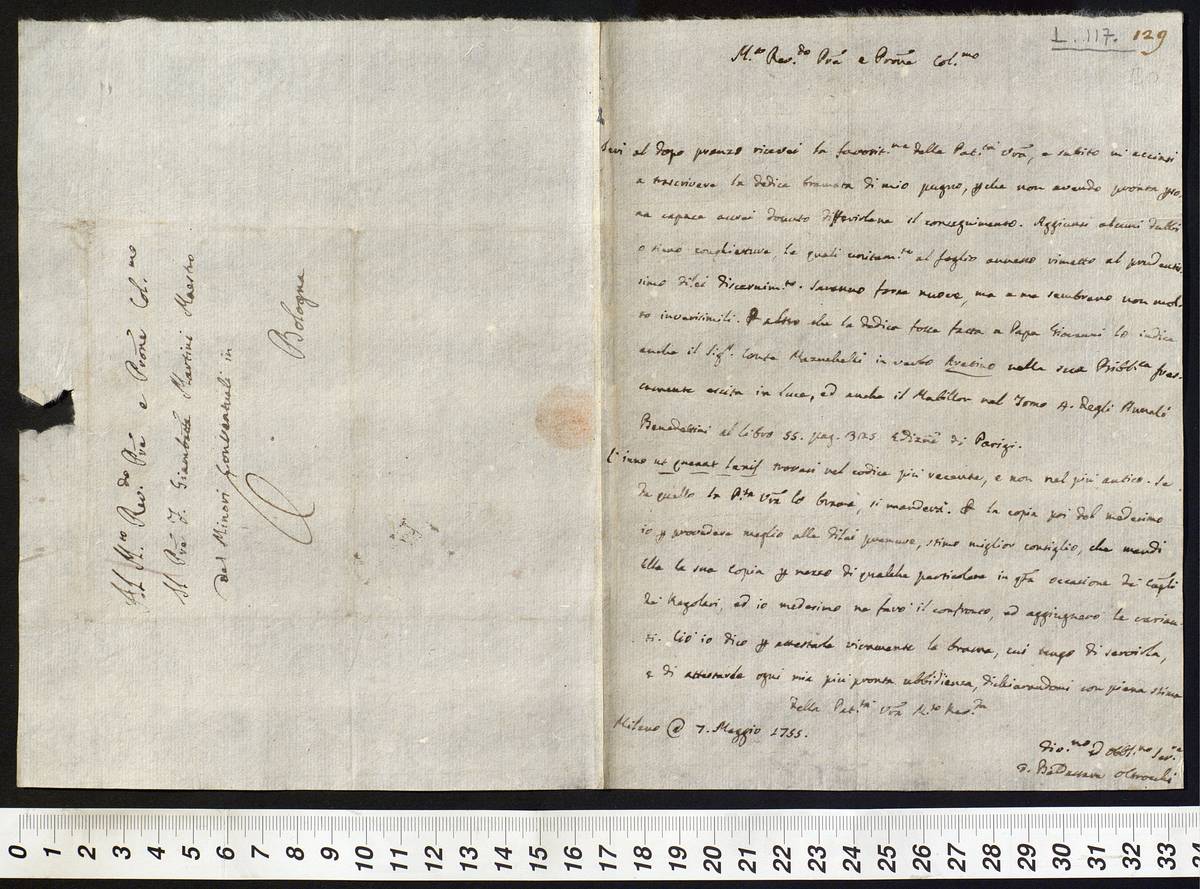 Al M.to Rev.do Prē e Prōne Col.mo
Il Prē F. Giambatta Martini Maestro
de' Minori Conventuali in
Bologna
L. 117. 129
M.to Rev.do Prē e Prōne Col.mo
Jeri al dopo pranzo ricevei la favorit.ma della Pat.tà Vrā, e subito mi accinsi
a trascrivere la dedica bramata di mio pugno, pche non avendo pronta pso-
na capace avrei dovuto differirlene il conseguimento. Aggiunsi alcuni dubbi
o sieno conghietture, le quali unitam.te al foglio annesso rimetto al prudentis-
simo dilei discernim.to. Saranno forse nuove, ma a me sembrano non mol-
to inverisimili. altro che la dedica fosse fatta a Papa Giovanni lo indica
anche il Sig.r Conte Mazuchelli in verbo Aretino nella sua Bibli.ca fres-
camente escita in luce, ed anche il Mabillon nel Tomo 4. degli Annali
Benedettini al libro 55. pag. 325. Edizne di Parigi.
L'inno ut queant laxis trovasi nel codice più recente, e non nel più antico. Se
da quello la P.tà Vrā lo brama, si manderà. P la copia poi del medesimo
io p provedere meglio alle dilei premure, stimo miglior consiglio, che mandi
Ella la sua copia p mezzo di qualche particolare in qta occasione de' Capli
de' Regolari, ed io medesimo ne farò il confronto, ed aggiugnerò le varian-
ti. Ciò io dico p attestarle vivamente la brama, cui tengo di servirla,
e di attestarle ogni mia più pronta ubbidienza, dichiarandomi con piena stima
della Pat.tà Vrā M.to Rev.da
Milano @ 7. Maggio 1755.
Div.mo ed Obbl.mo Ser.e
D. Baldassare Oltrocchi